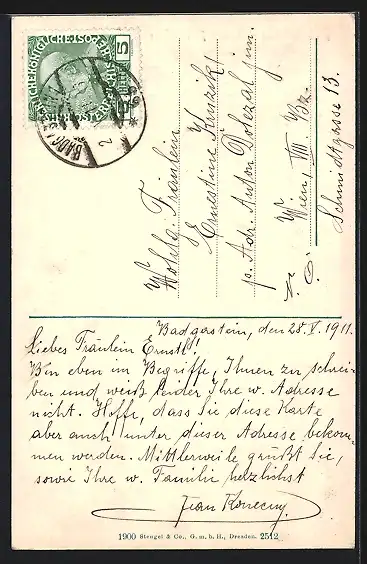 5
BADGASTEIN
Wohlg. Fräulein
Ernestine
p. Adr. Anton Dolezal jun.
Wien, VIII. Bz.
Schmidtgasse 13.
N. Ö.
Badgastein, den 28. V. 1911.
Liebes Fräulein Ernstl!
Bin eben im Begriffe, Ihnen zu schrei-
ben und weiß leider Ihre w. Adresse
nicht. Hoffe, dass Sie diese Karte
aber auch unter dieser Adresse bekom-
men werden. Mittlerweile grüßt Sie,
sowie Ihre w. Familie herzlichst
Konecny
1900 Stengel & Co., G. m. b. H., Dresden. 2512